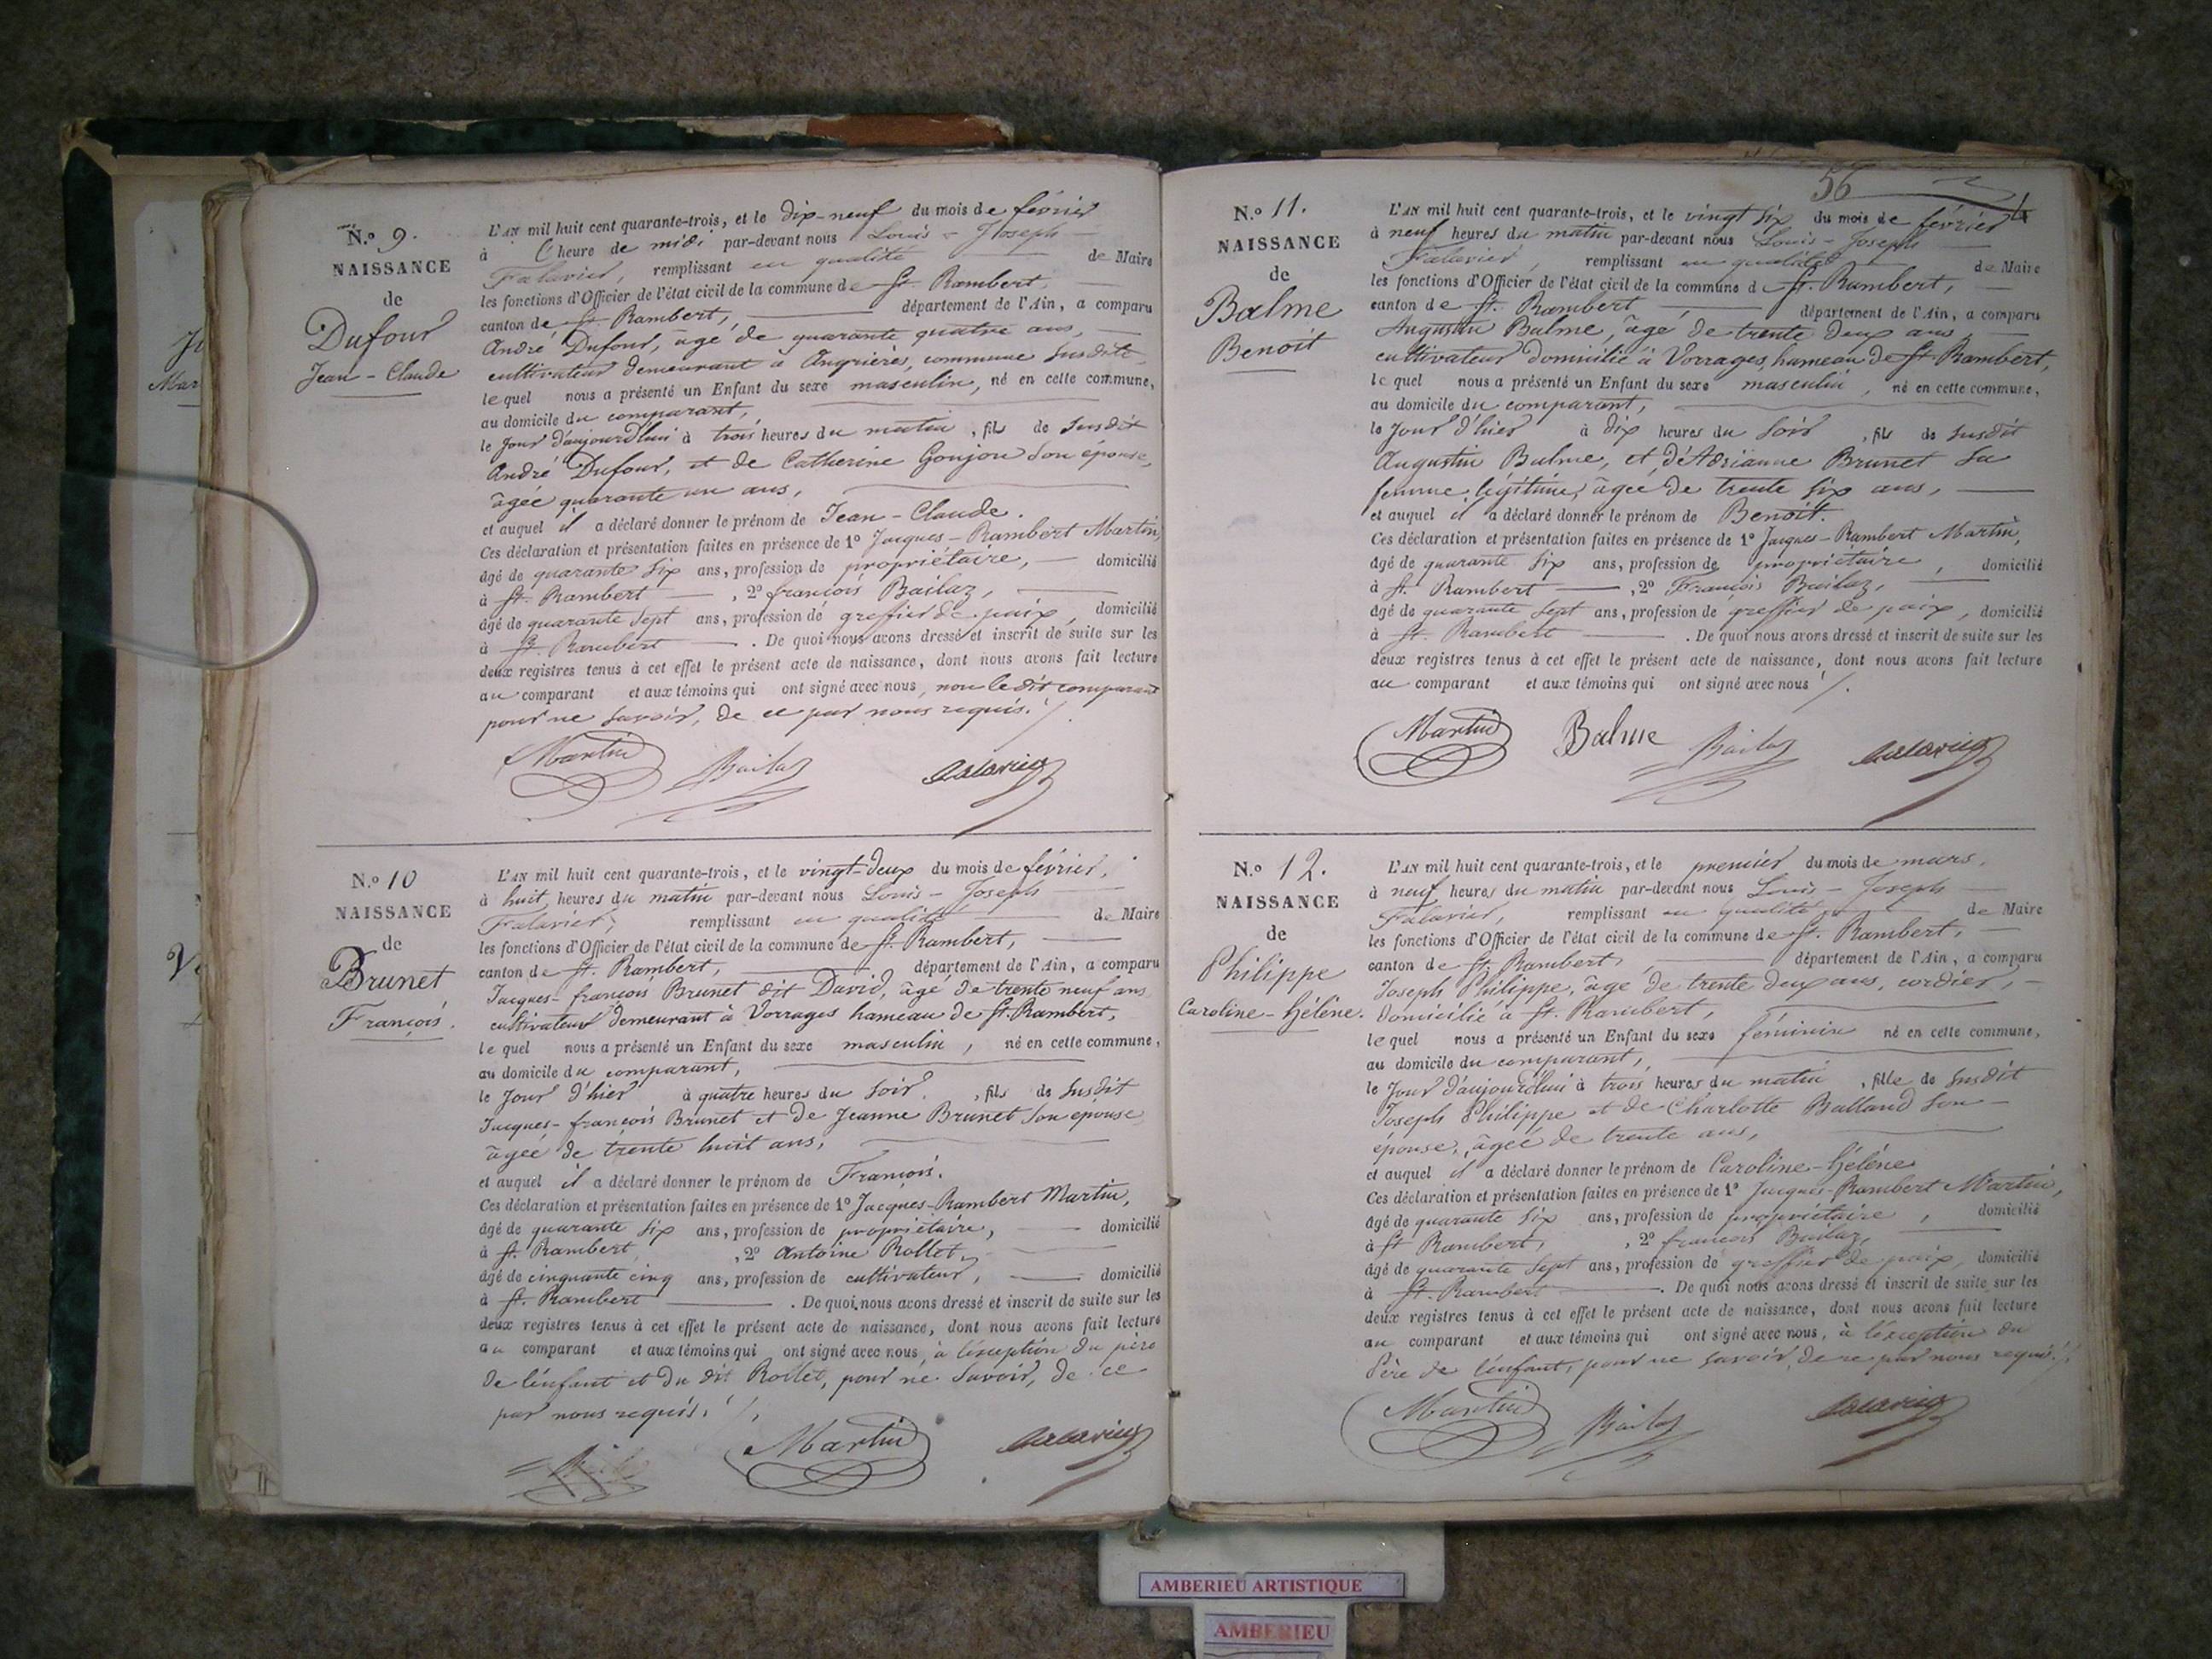 N.o 9.
NAISSANCE
de
Dufour
Jean-Claude
L'AN mil huit cent quarante-trois, et le dix-neuf du mois de février
à l'heure de midi par-devant nous Louis-Joseph
Falavier, remplissant en qualité de Maire
les fonctions d'Officier de l'état civil de la commune de St. Rambert,
canton de St. Rambert, département de l'Ain, a comparu
André Dufour, âgé de quarante quatre ans,
cultivateur demeurant à Angrières, commune susdite
lequel nous a présenté un Enfant du sexe masculin, né en cette commune,
au domicile du comparant,
le jour d'aujourd'hui à trois heures du matin, fils de susdit
André Dufour, et de Catherine Goujon son épouse,
âgée quarante un ans,
et auquel il a déclaré donner le prénom de Jean-Claude.
Ces déclaration et présentation faites en présence de 1o Jacques-Rambert Martin,
âgé de quarante six ans, profession de propriétaire, domicilié
à St. Rambert, 2o françois Bailaz,
âgé de quarante sept ans, profession de greffier de paix, domicilié
à St. Rambert. De quoi nous avons dressé et inscrit de suite sur les
deux registres tenus à cet effet le présent acte de naissance, dont nous avons fait lecture
au comparant et aux témoins qui ont signé avec nous, non le dit comparant
pour ne savoir, de ce par nous requis.
Martin Bailaz Falavier
N.o 10
NAISSANCE
de
Brunet
François.
L'AN mil huit cent quarante-trois, et le vingt-deux du mois de février,
à huit heures du matin par-devant nous Louis-Joseph
Falavier, remplissant en qualité de Maire
les fonctions d'Officier de l'état civil de la commune de St. Rambert,
canton de St. Rambert, département de l'Ain, a comparu
Jacques-françois Brunet dit David, âgé de trente neuf ans
cultivateur demeurant à Vorrages hameau de St. Rambert,
lequel nous a présenté un Enfant du sexe masculin, né en cette commune,
au domicile du comparant,
le jour d'hier à quatre heures du soir, fils de susdit
Jacques-françois Brunet et de Jeanne Brunet son épouse
âgée de trente huit ans,
et auquel il a déclaré donner le prénom de François.
Ces déclaration et présentation faites en présence de 1o Jacques-Rambert Martin,
âgé de quarante six ans, profession de propriétaire, domicilié
à St. Rambert, 2o Antoine Rollet,
âgé de cinquante cinq ans, profession de cultivateur, domicilié
à St. Rambert. De quoi nous avons dressé et inscrit de suite sur les
deux registres tenus à cet effet le présent acte de naissance, dont nous avons fait lecture
au comparant et aux témoins qui ont signé avec nous, à l'exception du père
de l'enfant et du dit Rollet, pour ne savoir, de ce
par nous requis.
Martin Falavier
56
N.o 11.
NAISSANCE
de
Balme
Benoit
L'AN mil huit cent quarante-trois, et le vingt six du mois de février
à neuf heures du matin par-devant nous Louis-Joseph
Falavier, remplissant en qualité de Maire
les fonctions d'Officier de l'état civil de la commune de St. Rambert,
canton de St. Rambert, département de l'Ain, a comparu
Augustin Balme, âgé de trente deux ans
cultivateur domicilié à Vorrages, hameau de St. Rambert,
lequel nous a présenté un Enfant du sexe masculin, né en cette commune,
au domicile du comparant,
le jour d'hier à dix heures du soir, fils de susdit
Augustin Balme, et d'Adrianne Brunet sa
femme légitime, âgée de trente six ans,
et auquel il a déclaré donner le prénom de Benoit.
Ces déclaration et présentation faites en présence de 1o Jacques-Rambert Martin,
âgé de quarante six ans, profession de propriétaire, domicilié
à St. Rambert, 2o François Bailaz,
âgé de quarante sept ans, profession de greffier de paix, domicilié
à St. Rambert. De quoi nous avons dressé et inscrit de suite sur les
deux registres tenus à cet effet le présent acte de naissance, dont nous avons fait lecture
au comparant et aux témoins qui ont signé avec nous.
Martin Balme Bailaz Falavier
N.o 12.
NAISSANCE
de
Philippe
Caroline-Hélène.
L'AN mil huit cent quarante-trois, et le premier du mois de mars,
à neuf heures du matin par-devant nous Louis-Joseph
Falavier, remplissant en qualité de Maire
les fonctions d'Officier de l'état civil de la commune de St. Rambert,
canton de St. Rambert, département de l'Ain, a comparu
Joseph Philippe, âgé de trente deux ans, cordier,
domicilié à St. Rambert,
lequel nous a présenté un Enfant du sexe féminin né en cette commune,
au domicile du comparant,
le jour d'aujourd'hui à trois heures du matin, fille de susdit
Joseph Philippe et de Charlotte Balland son
épouse, âgée de trente ans,
et auquel il a déclaré donner le prénom de Caroline-Hélène
Ces déclaration et présentation faites en présence de 1o Jacques-Rambert Martin,
âgé de quarante six ans, profession de propriétaire, domicilié
à St Rambert, 2o françois Bailaz,
âgé de quarante sept ans, profession de greffier de paix, domicilié
à St. Rambert. De quoi nous avons dressé et inscrit de suite sur les
deux registres tenus à cet effet le présent acte de naissance, dont nous avons fait lecture
au comparant et aux témoins qui ont signé avec nous, à l'exception du
Père de l'enfant, pour ne savoir, de ce par nous requis.
Martin Bailaz Falavier
AMBERIEU ARTISTIQUE
AMBERIEU